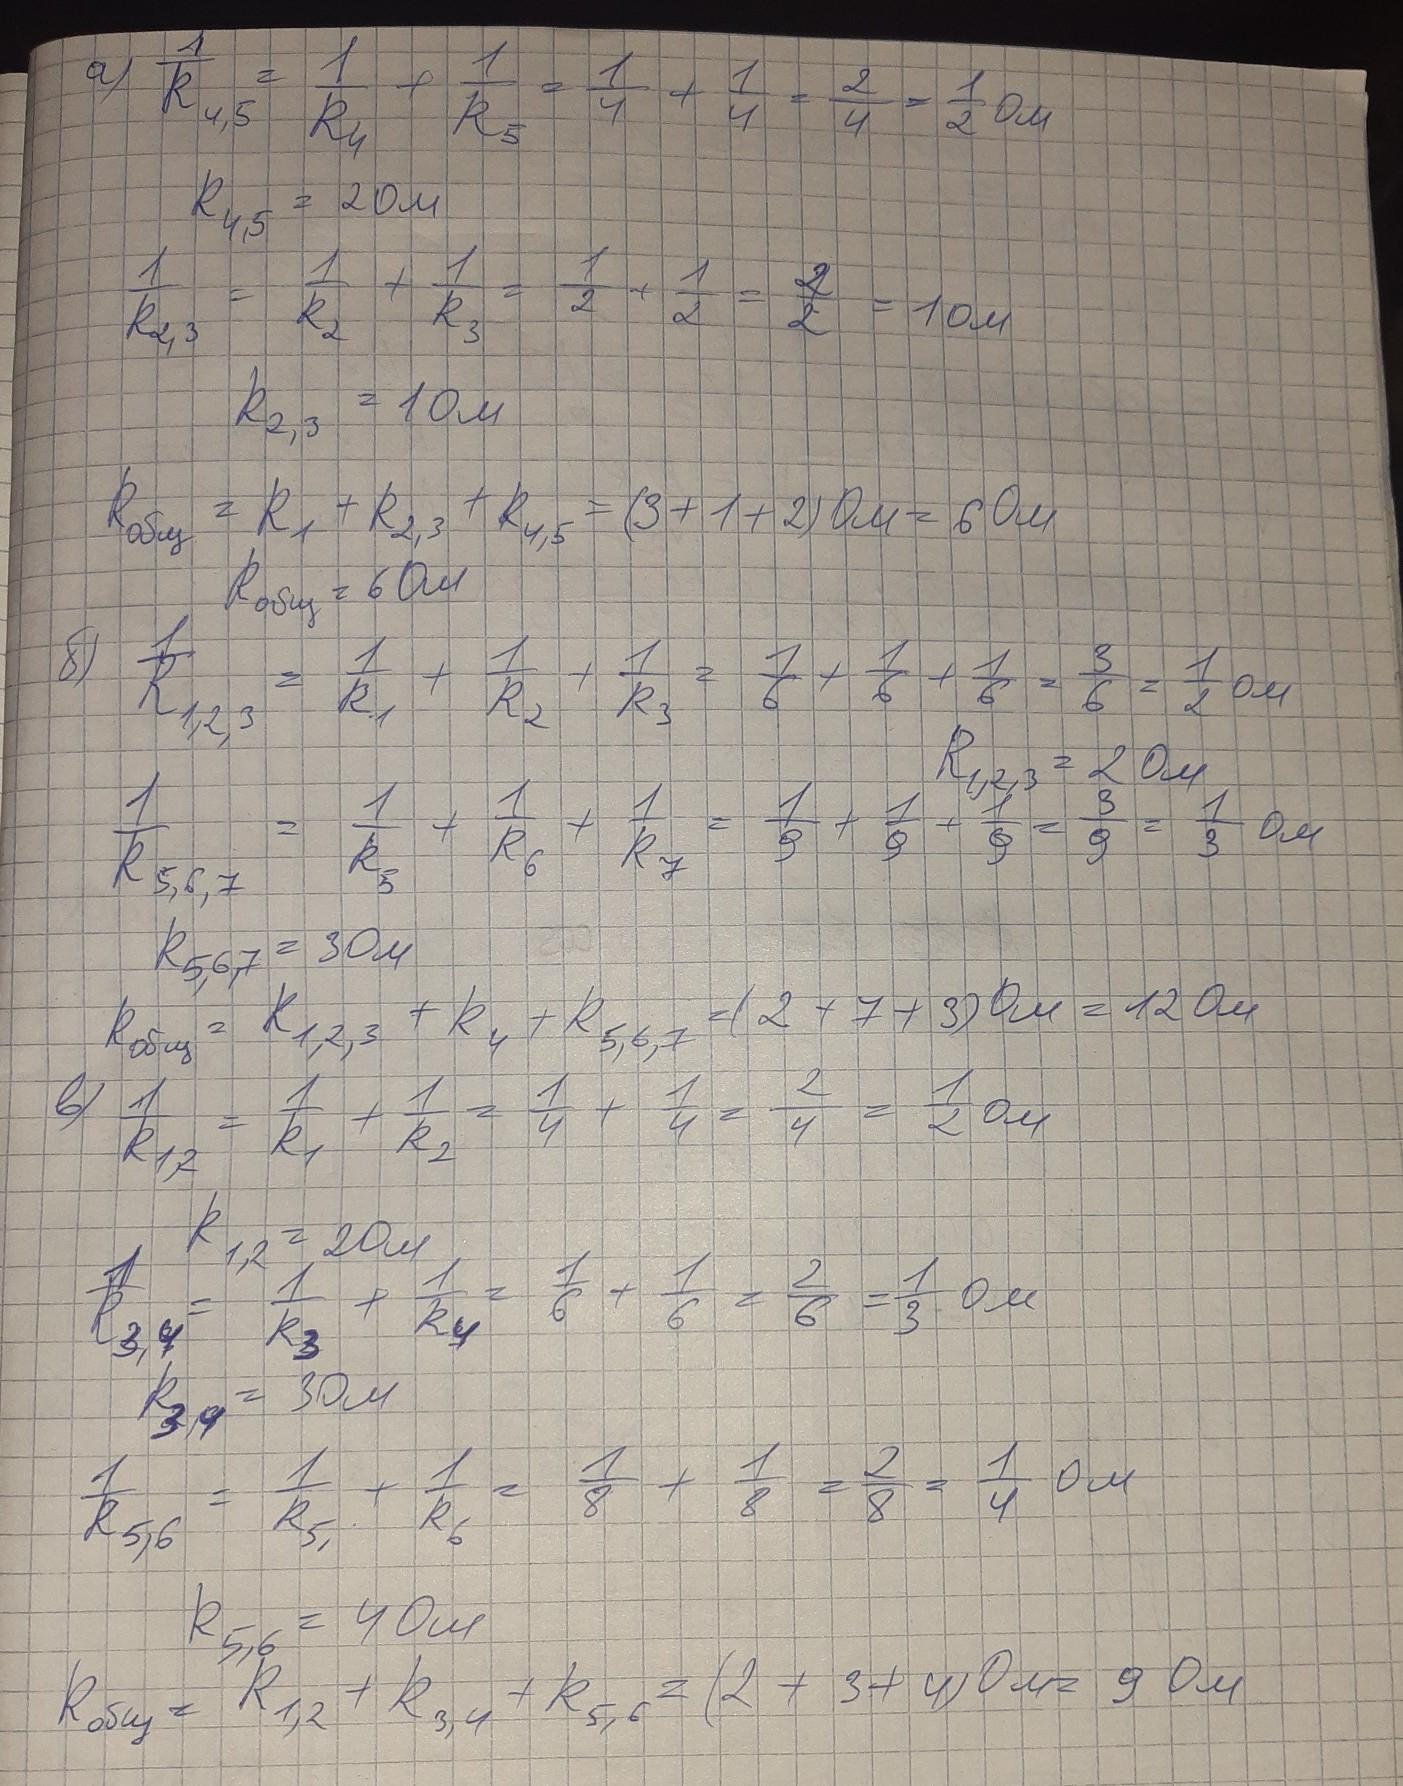 а) 1/R4,5 = 1/R4 + 1/R5 = 1/4 + 1/4 = 2/4 = 1/2 Ом
R4,5 = 2 Ом
1/R2,3 = 1/R2 + 1/R3 = 1/2 + 1/2 = 2/2 = 1 Ом
R2,3 = 1 Ом
Rобщ = R1 + R2,3 + R4,5 = (3+1+2) Ом = 6 Ом
Rобщ = 6 Ом
б) 1/R1,2,3 = 1/R1 + 1/R2 + 1/R3 = 1/6 + 1/6 + 1/6 = 3/6 = 1/2 Ом
R1,2,3 = 2 Ом
1/R5,6,7 = 1/R5 + 1/R6 + 1/R7 = 1/9 + 1/9 + 1/9 = 3/9 = 1/3 Ом
R5,6,7 = 3 Ом
Rобщ = R1,2,3 + R4 + R5,6,7 = (2+7+3) Ом = 12 Ом
в) 1/R1,2 = 1/R1 + 1/R2 = 1/4 + 1/4 = 2/4 = 1/2 Ом
R1,2 = 2 Ом
1/R3,4 = 1/R3 + 1/R4 = 1/6 + 1/6 = 2/6 = 1/3 Ом
R3,4 = 3 Ом
1/R5,6 = 1/R5 + 1/R6 = 1/8 + 1/8 = 2/8 = 1/4 Ом
R5,6 = 4 Ом
Rобщ = R1,2 + R3,4 + R5,6 = (2+3+4) Ом = 9 Ом